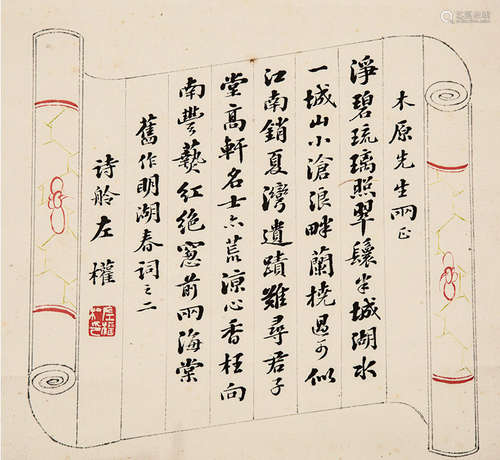 木原先生兩正
淨碧琉璃照翠鬟半城湖水
一城山小滄浪畔蘭橈過可似
江南銷夏灣遺蹟難尋君子
堂高軒名士亦荒涼心香枉向
南豐爇紅絕窗前兩海棠
舊作明湖春詞之二
詩舲左權